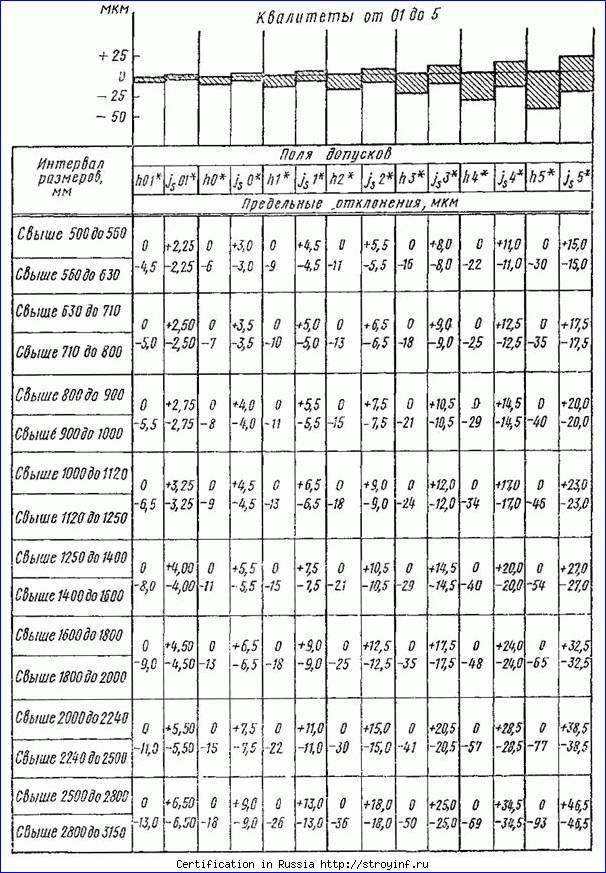 мкм
Квалитеты от 01 до 5
+25
0
-25
-50
Интервал размеров, мм
Поля допусков
h01* js01* h0* js0* h1* js1* h2* js2* h3* js3* h4* js4* h5* js5*
Предельные отклонения, мкм
Свыше 500 до 560
0 +2,25 0 +3,0 0 +4,5 0 +5,5 0 +8,0 0 +11,0 0 +15,0
-4,5 -2,25 -6 -3,0 -9 -4,5 -11 -5,5 -16 -8,0 -22 -11,0 -30 -15,0
Свыше 560 до 630
Свыше 630 до 710
0 +2,50 0 +3,5 0 +5,0 0 +6,5 0 +9,0 0 +12,5 0 +17,5
-5,0 -2,50 -7 -3,5 -10 -5,0 -13 -6,5 -18 -9,0 -25 -12,5 -35 -17,5
Свыше 710 до 800
Свыше 800 до 900
0 +2,75 0 +4,0 0 +5,5 0 +7,5 0 +10,5 0 +14,5 0 +20,0
-5,5 -2,75 -8 -4,0 -11 -5,5 -15 -7,5 -21 -10,5 -29 -14,5 -40 -20,0
Свыше 900 до 1000
Свыше 1000 до 1120
0 +3,25 0 +4,5 0 +6,5 0 +9,0 0 +12,0 0 +17,0 0 +23,0
-6,5 -3,25 -9 -4,5 -13 -6,5 -18 -9,0 -24 -12,0 -34 -17,0 -46 -23,0
Свыше 1120 до 1250
Свыше 1250 до 1400
0 +4,00 0 +5,5 0 +7,5 0 +10,5 0 +14,5 0 +20,0 0 +27,0
-8,0 -4,00 -11 -5,5 -15 -7,5 -21 -10,5 -29 -14,5 -40 -20,0 -54 -27,0
Свыше 1400 до 1600
Свыше 1600 до 1800
0 +4,50 0 +6,5 0 +9,0 0 +12,5 0 +17,5 0 +24,0 0 +32,5
-9,0 -4,50 -13 -6,5 -18 -9,0 -25 -12,5 -35 -17,5 -48 -24,0 -65 -32,5
Свыше 1800 до 2000
Свыше 2000 до 2240
0 +5,50 0 +7,5 0 +11,0 0 +15,0 0 +20,5 0 +28,5 0 +38,5
-11,0 -5,50 -15 -7,5 -22 -11,0 -30 -15,0 -41 -20,5 -57 -28,5 -77 -38,5
Свыше 2240 до 2500
Свыше 2500 до 2800
0 +6,50 0 +9,0 0 +13,0 0 +18,0 0 +25,0 0 +34,5 0 +46,5
-13,0 -6,50 -18 -9,0 -26 -13,0 -36 -18,0 -50 -25,0 -69 -34,5 -93 -46,5
Свыше 2800 до 3150
Certification in Russia http://stroyinf.ru